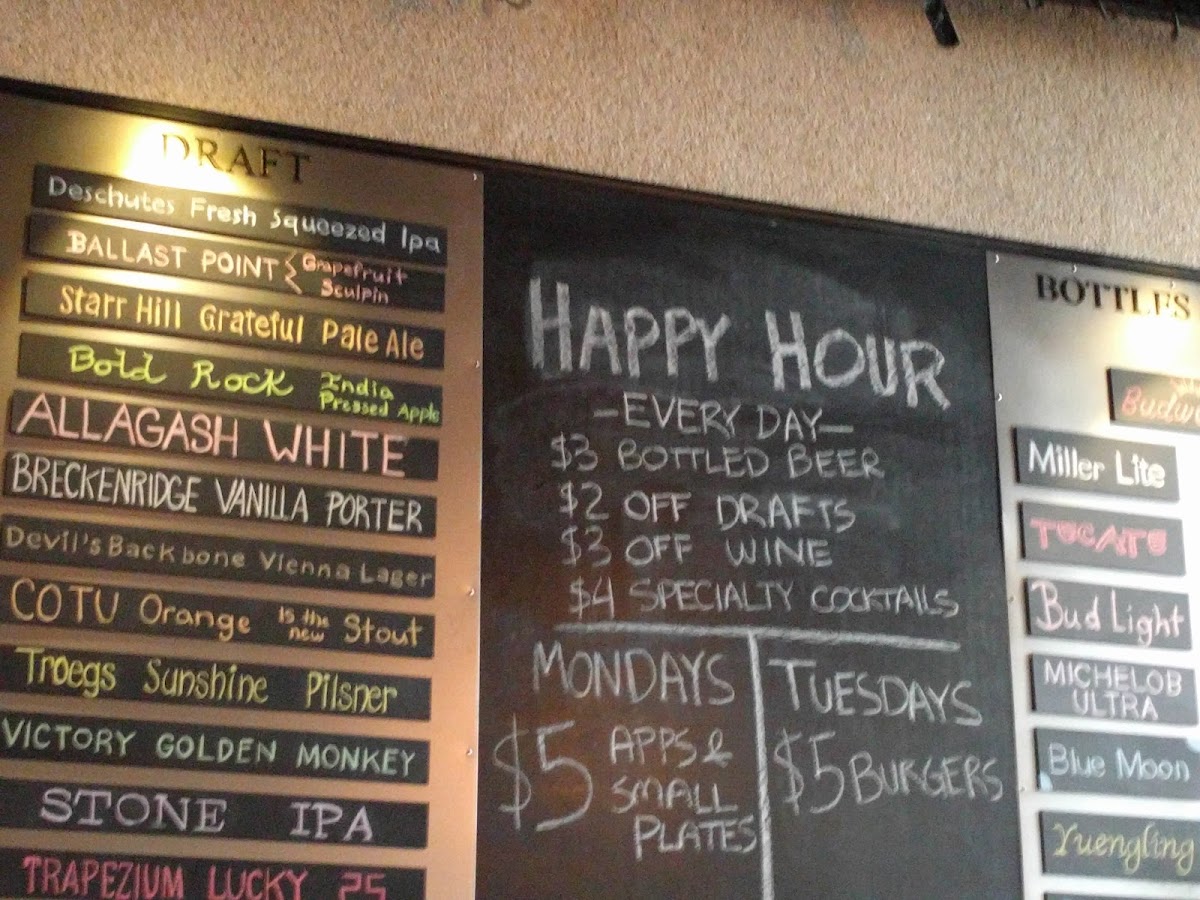 DRAFT
Deschutes Fresh Squeezed Ipa
BALLAST POINT { Grapefruit
Sculpin
Starr Hill Grateful Pale Ale
Bold Rock India
Pressed Apple
ALLAGASH WHITE
BRECKENRIDGE VANILLA PORTER
Devil's Backbone Vienna Lager
COTU Orange is the
new Stout
Troegs Sunshine Pilsner
VICTORY GOLDEN MONKEY
STONE IPA
TRAPEZIUM LUCKY 25
HAPPY HOUR
-EVERY DAY-
$3 BOTTLED BEER
$2 OFF DRAFTS
$3 OFF WINE
$4 SPECIALTY COCKTAILS
MONDAYS
$5 APPS &
SMALL
PLATES
TUESDAYS
$5 BURGERS
BOTTLES
Budw
Miller Lite
Bud Light
MICHELOB
ULTRA
Blue Moon
Yuengling